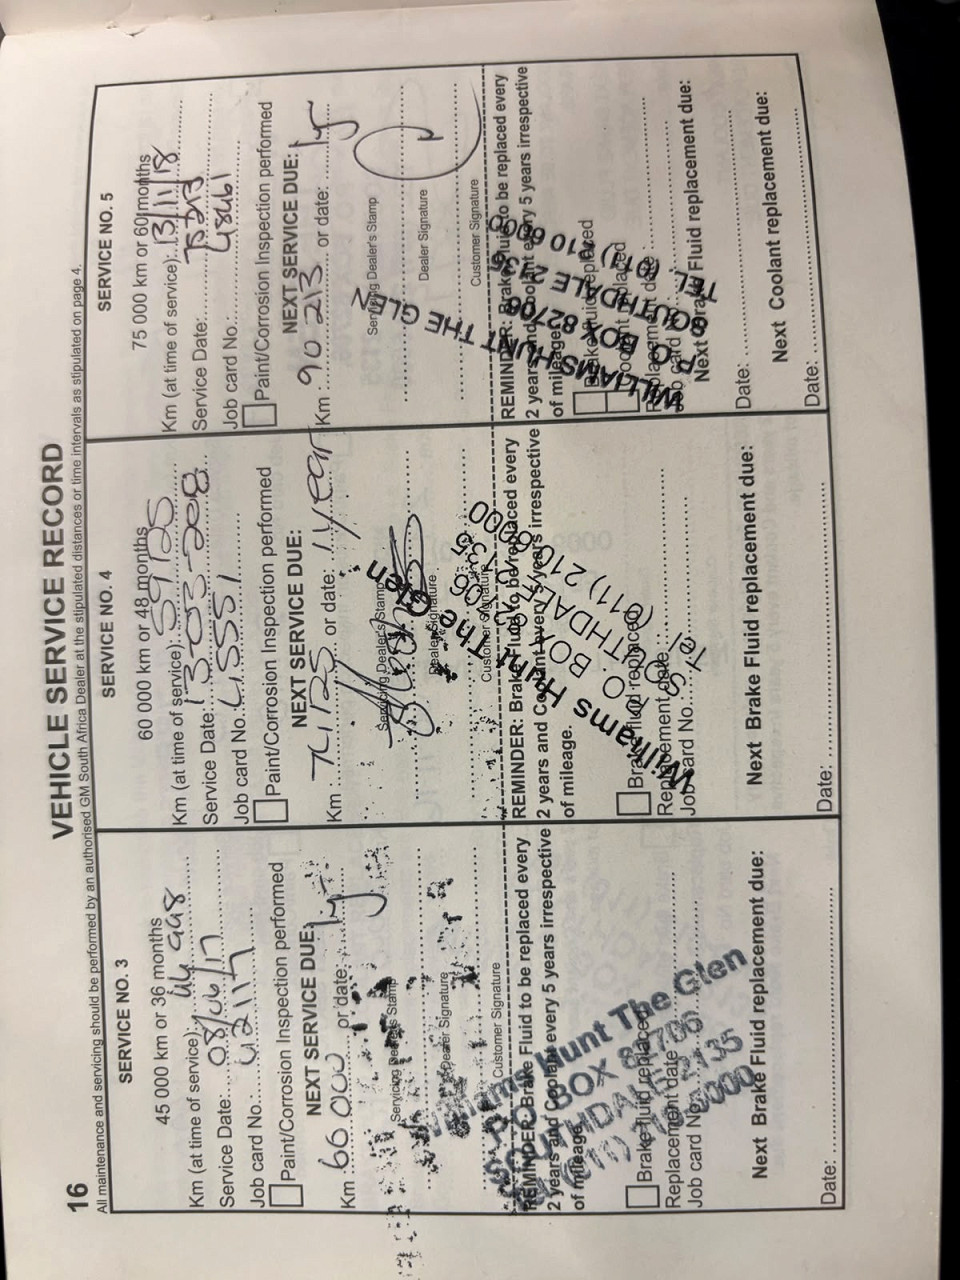 16
VEHICLE SERVICE RECORD
All maintenance and servicing should be performed by an authorised GM South Africa Dealer at the stipulated distances or time intervals as stipulated on page 4.
SERVICE NO. 3
45 000 km or 36 months
Km (at time of service): 44 998
Service Date: 08/06/17
Job card No.: 42117
Paint/Corrosion Inspection performed
NEXT SERVICE DUE:
Km 60 000 or date: 1yr
Servicing Dealer's Stamp
Dealer Signature
Customer Signature
REMINDER: Brake Fluid to be replaced every
2 years and Coolant every 5 years irrespective
of mileage.
Brake fluid replaced
Replacement date
Job card No.
Williams Hunt The Glen
P.O. BOX 82706
SOUTHDALE 2135
Next Brake Fluid replacement due:
Date:
SERVICE NO. 4
60 000 km or 48 months
Km (at time of service): 59125
Service Date: 13-03-2018
Job card No.: 45551
Paint/Corrosion Inspection performed
NEXT SERVICE DUE:
Km: 74125 or date: 1 year
Servicing Dealer's Stamp
Dealer Signature
Customer Signature
REMINDER: Brake Fluid to be replaced every
2 years and Coolant every 5 years irrespective
of mileage.
Brake fluid replaced
Replacement date:
Job card No.
Williams Hunt The Glen
P.O. BOX 82706
SOUTHDALE 2135
Tel (011) 210 6000
Next Brake Fluid replacement due:
Date:
SERVICE NO. 5
75 000 km or 60 months
Km (at time of service): 13/11/18
Service Date: 75213
Job card No.: 48661
Paint/Corrosion Inspection performed
NEXT SERVICE DUE:
Km: 90 213 or date: 1yr
Servicing Dealer's Stamp
Dealer Signature
Customer Signature
REMINDER: Brake Fluid to be replaced every
2 years and Coolant every 5 years irrespective
of mileage.
Brake fluid replaced
Coolant replaced
Replacement date:
Job card No.
WILLIAMS HUNT THE GLEN
P.O. BOX 82706
SOUTHDALE 2135
TEL. (011) 210 6000
Next Brake Fluid replacement due:
Date:
Next Coolant replacement due:
Date: